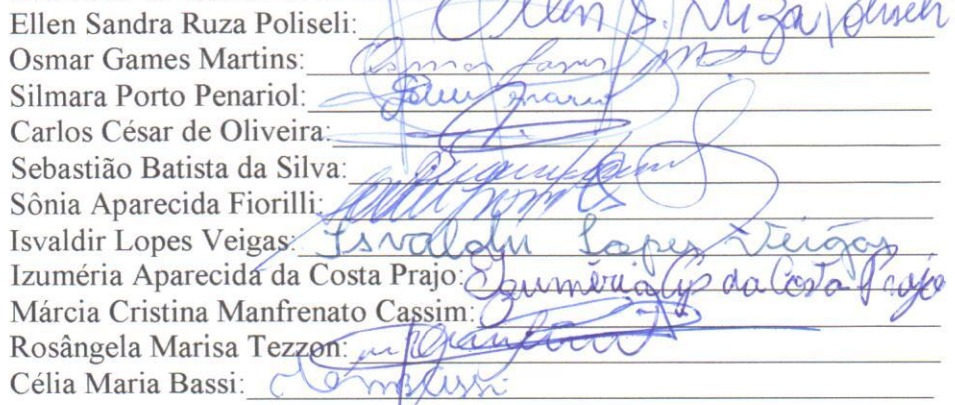 Ellen Sandra Ruza Poliseli: Ellen S. Ruza Poliseli
Osmar Games Martins: Osmar Games
Silmara Porto Penariol:
Carlos César de Oliveira:
Sebastião Batista da Silva:
Sônia Aparecida Fiorilli:
Isvaldir Lopes Veigas: Isvaldir Lopes Veigas
Izuméria Aparecida da Costa Prajo: Izuméria Ap da Costa Prajo
Márcia Cristina Manfrenato Cassim:
Rosângela Marisa Tezzon:
Célia Maria Bassi: